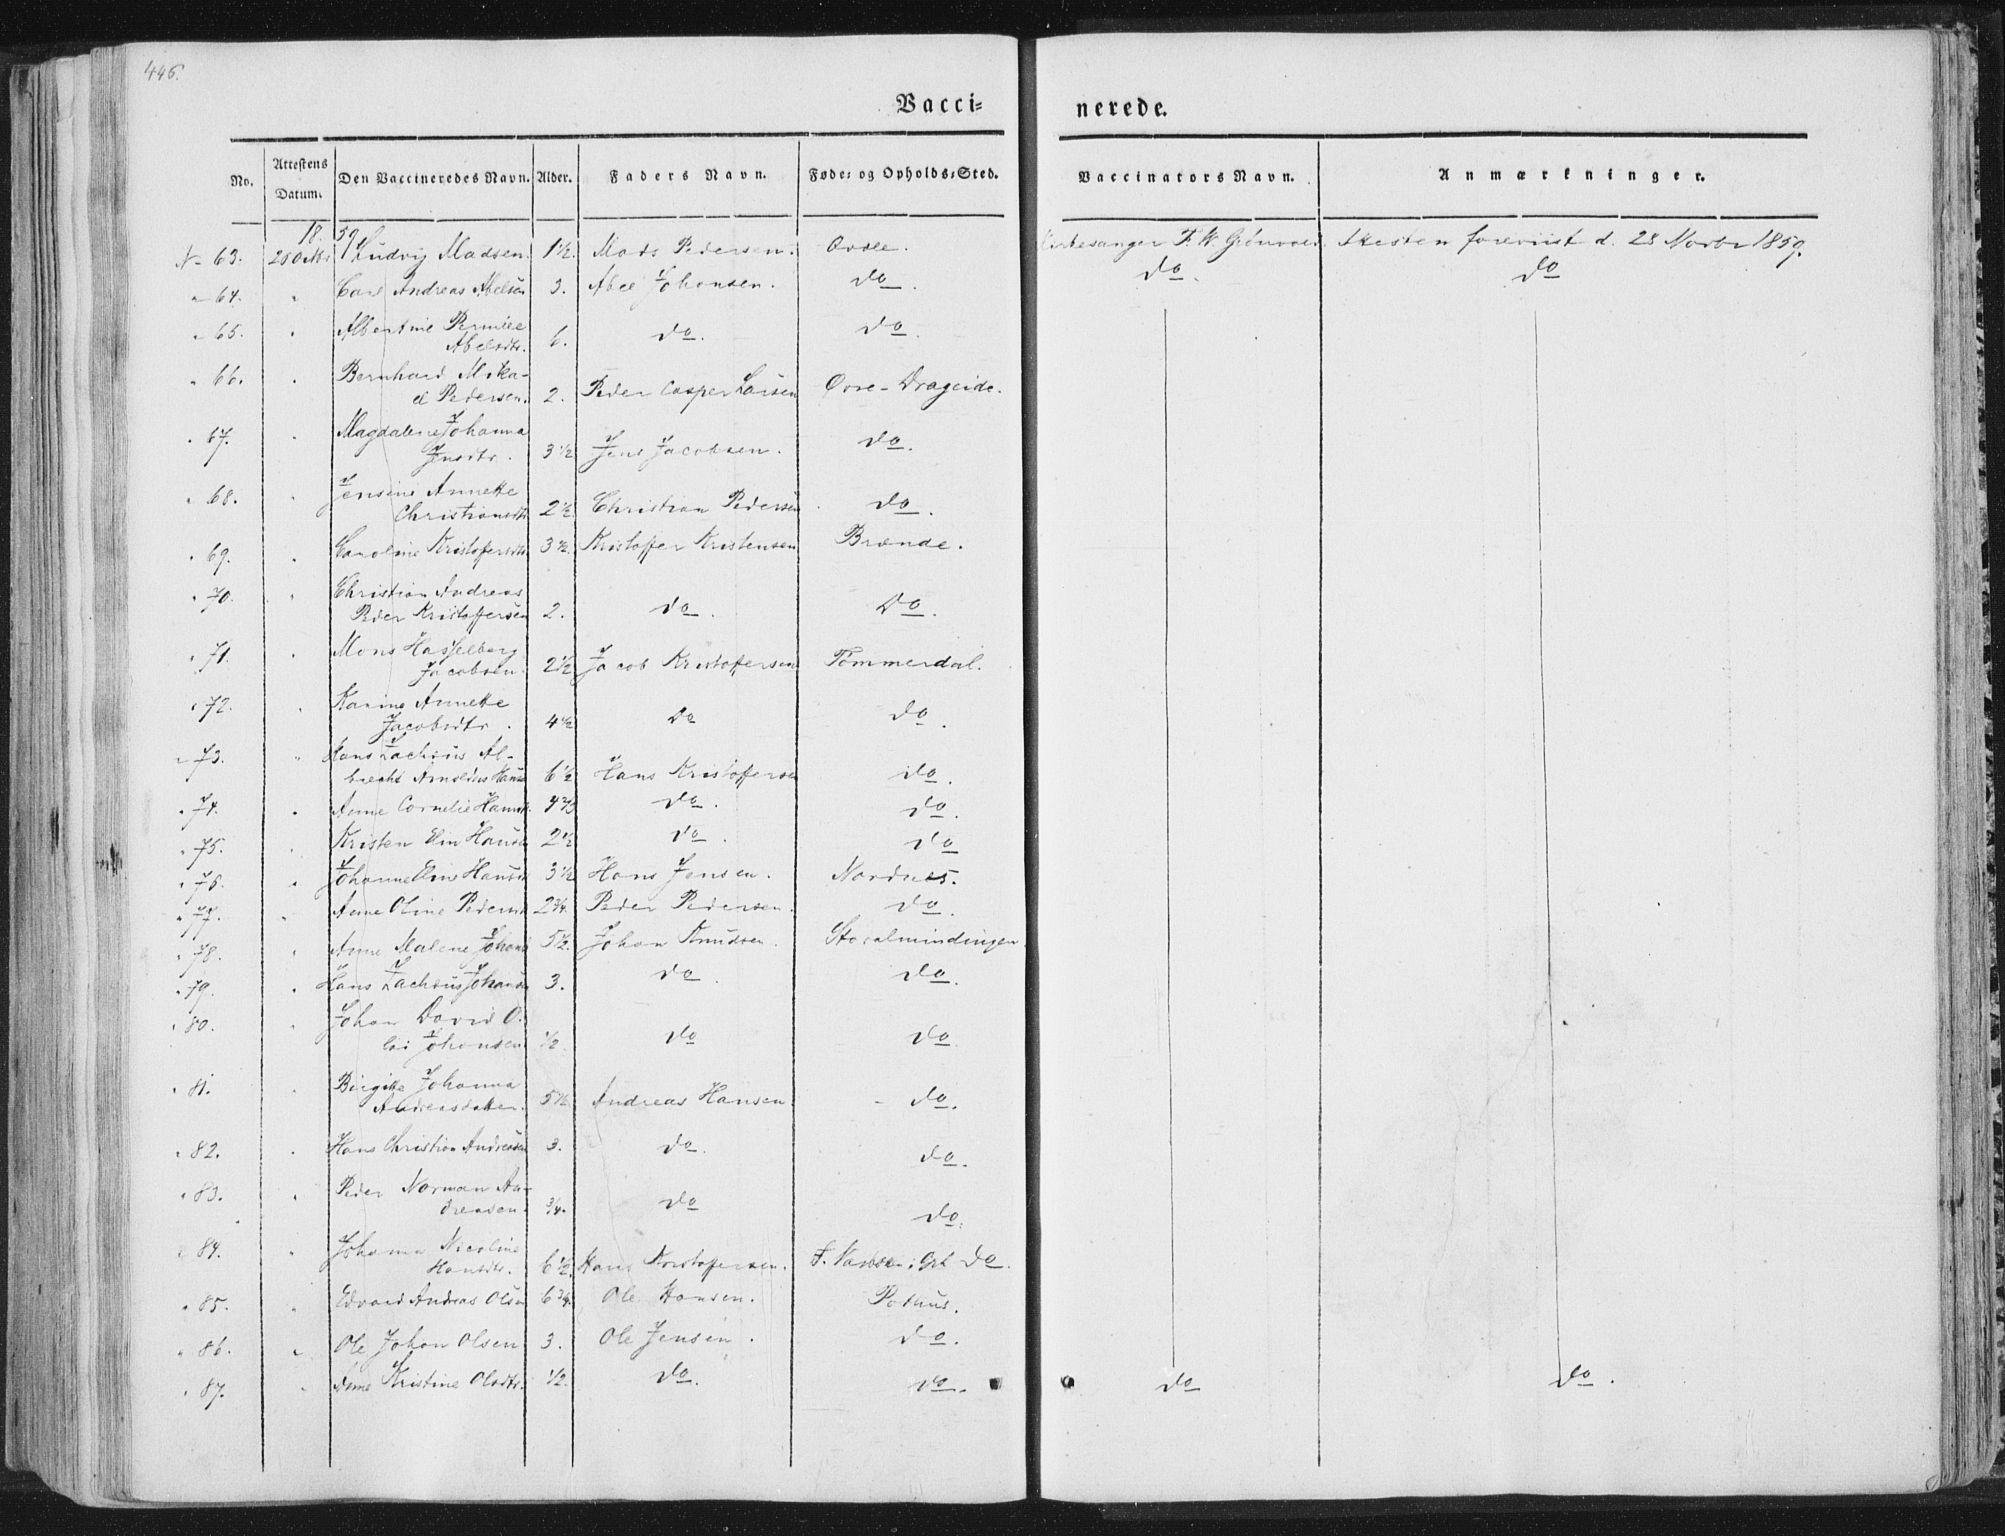 446.
Vacci=
nerede.
No. Attestens Datum. Den Vaccineredes Navn. Alder. Faders Navn. Føde= og Opholds=Sted. Vaccinators Navn. Anmærkninger.
18 59
N- 63. Ludvig Madsen. 1½. Mads Pedersen. Kirkesanger F. W. Grönvold. Attesten foreviist d. 28 Novbr 1859.
" 64. " Carl Andreas Abelsen 3. Abel Johansen. do. do. do
" 65. " Albertine Pernille
Abelsdtr. 6. do. do.
" 66. " Bernhard Mika-
el Pedersen. 2. Peder Casper Larsen Övre-Drageide.
" 67. " Magdalene Johanna
Jensdtr. 3½ Jens Jacobsen. do.
" 68. " Jensine Annette
Christiansdtr. 2½. Christian Pedersen do.
" 69. " Caroline Kristofersdtr 3½. Kristoffer Kristensen Brænde.
" 70. " Christian Andreas
Peder Kristoffersen 2. do. Do.
" 71. " Mons Hasselberg
Jacobsen. 2½ Jacob Kristoffersen Tömmerdal.
" 72. " Karine Annette
Jacobsdtr. 4½ Do do.
" 73. " Hans Zachæus Al-
brecht Arnoldus Hansen 6½ Hans Kristoffersen do.
" 74. " Anne Cornelie Hansdtr. do. do.
" 75. " Kristen Elin Hansdtr 2½ do. do
" 76. " Johanne Eline Hansdtr 3½ Hans Jensen. Nordnes.
" 77. " Anne Oline Pedersdtr 2¾. Peder Pedersen. do.
" 78. " Anne Malene Johansdtr 5½. Johan Knudsen. Storalmindingen.
" 79. " Hans Zachæus Johansen 3. do. do.
" 80. " Johan David O-
lai Johansen ½. do do.
" 81. " Birgitte Johanna
Andreasdatter. 5½. Andreas Hansen. - do.
" 82. " Hans Christian Andreasen 3. do. do.
" 83. " Peder Norman An-
dreasen. ¾. do do.
" 84. " Johanna Nicoline
Hansdtr. 6½. Hans Kristoffersen. do.
" 85. " Edvard Andreas Olsen 6¾. Ole Hansen. Pothus.
" 86. " Ole Johan Olsen 3. Ole Jensen. do.
" 87. " Anne Kristine Olsdtr. ½. do. do. do do.